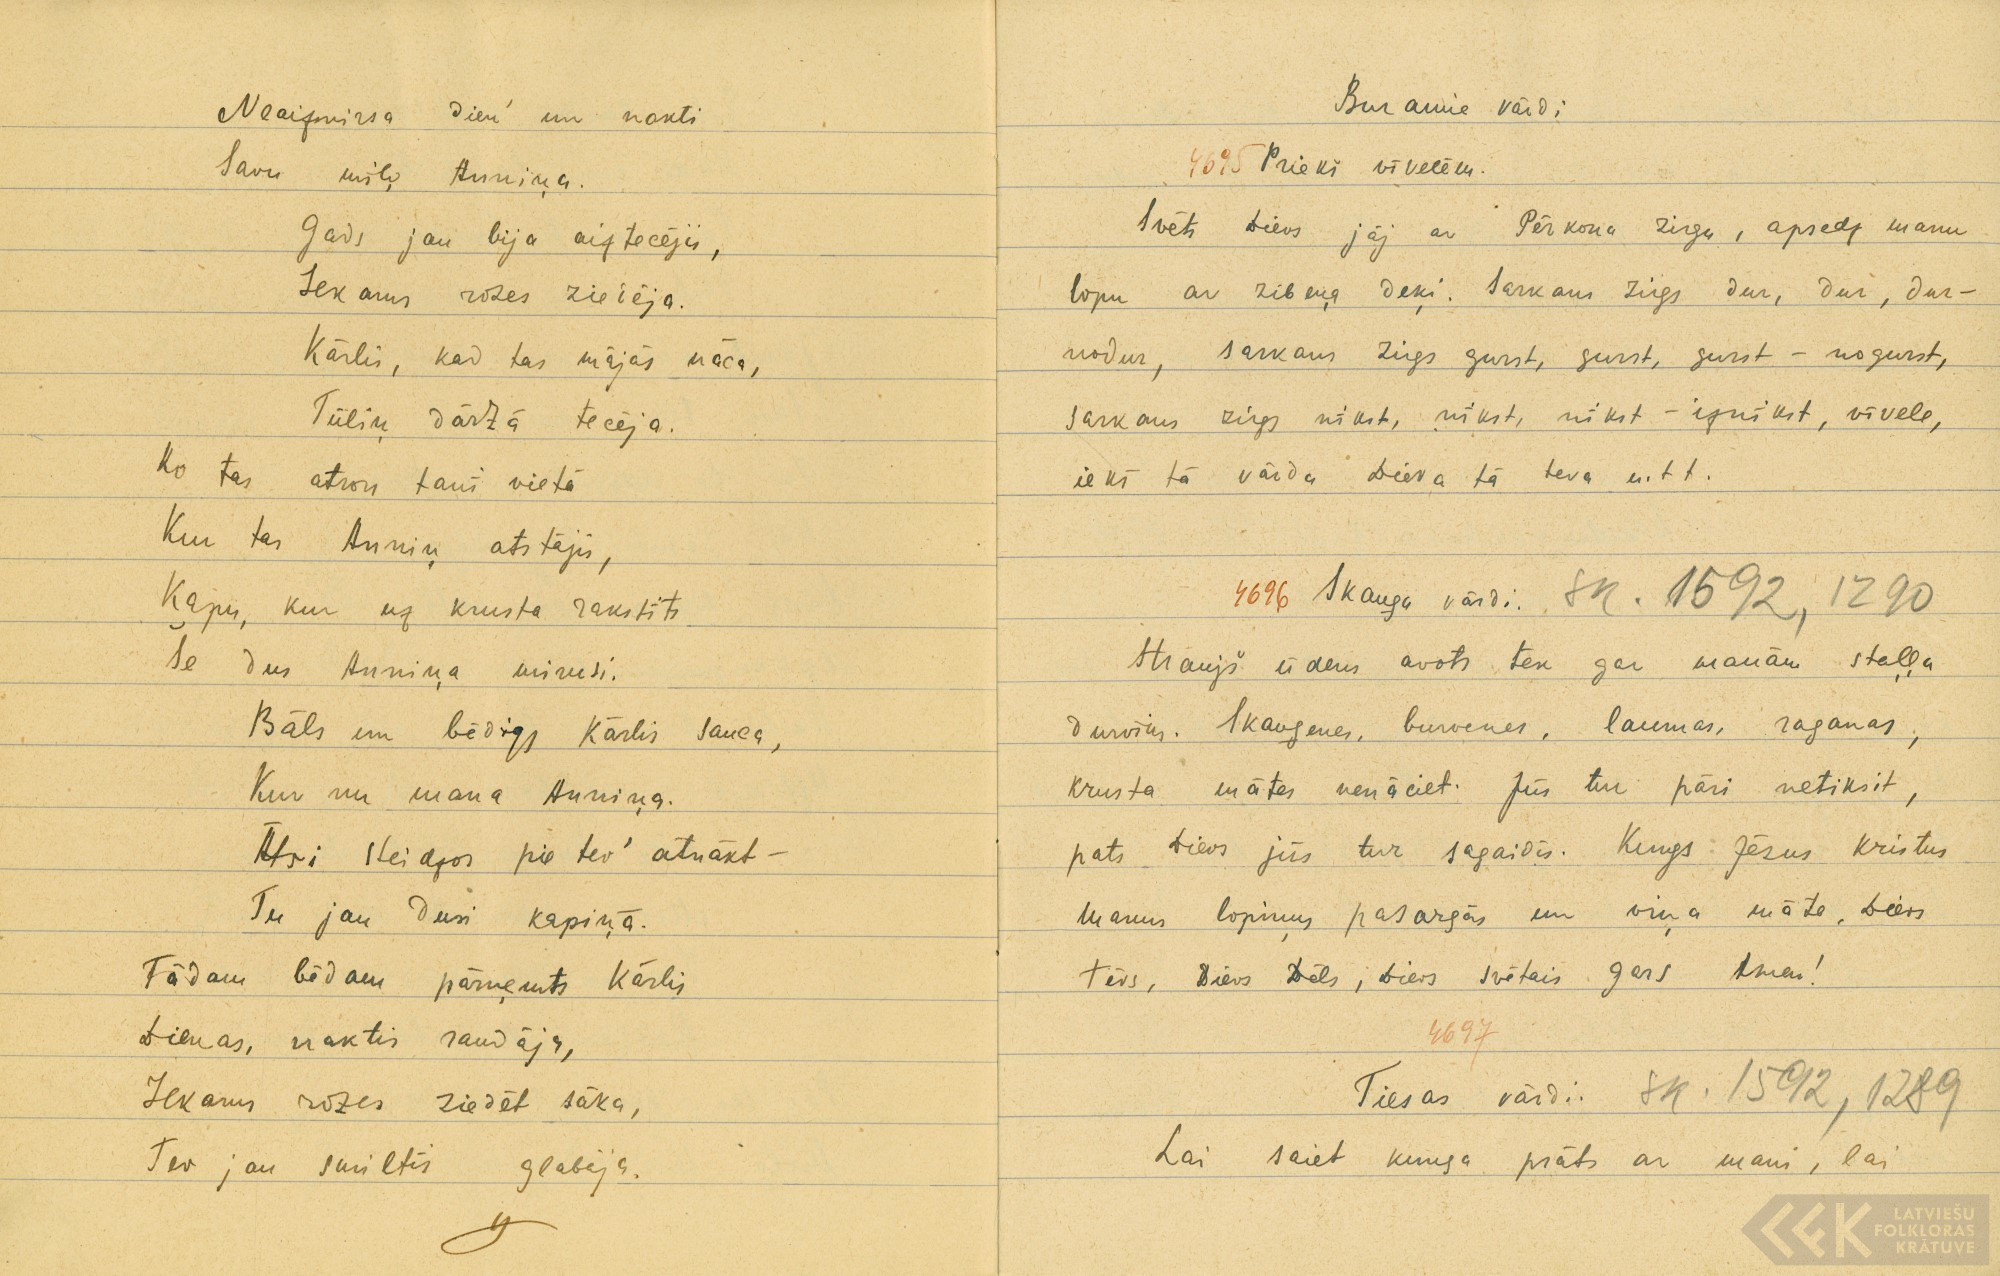 Neaizmirsa dien' un nakti
Savu mīļo Anniņa.
Gads jau bija aiztecējis,
Sekarus rozes ziedēja.
Kārlis, kad tas mājās nāca,
Tūliņ dārzā tecēja.
Ko tas atron tanī vietā
Kur tas Anniņ atstājis,
Kapu, kur uz krusta rakstīts
Še dus Anniņa mirusi.
Bāls un bēdīgs Kārlis sauca,
Kur nu mana Anniņa.
Ātri steidzos pie tev' atnākt –
Tu jau dusi kapiņā.
Tādam bēdam pārņemts Kārlis
Dienas, naktis raudāja,
Sekarus rozes ziedēt sāka,
Tev jau smiltis glabāja.
Buramie vārdi
4695 Priekš vīvelēm.
Svēts Dievs jāj ar Pērkona zirgu, apsedz manu
lopu ar zibeņa deķi. Sarkans zirgs dur, dur, dur –
nodur, sarkans zirgs gurst, gurst, gurst – nogurst,
sarkans zirgs nīkst, nīkst, nīkst – iznīkst, vīvele,
iekš tā vārda Dieva tā teva u.t t.
4696 Skauģa vārdi. sk. 1592, 1290
Straujš ūdens avots tek gar manām staļļa
durvīm. Skauģenes, burvenes, laumas, raganas,
krusta mātes nenāciet. Jūs tur pāri netiksit,
pats Dievs jūs tur sagaidīs. Kungs Jēzus Kristus
manus lopiņus pasargās un viņa māte, Dievs
tēvs, Dievs Dēls, Dievs svētais gars Amen!
4697
Tiesas vārdi. sk. 1592, 1289
Lai saiet kunga prāts ar mani, lai
LATVIEŠU
FOLKLORAS
KRĀTUVE